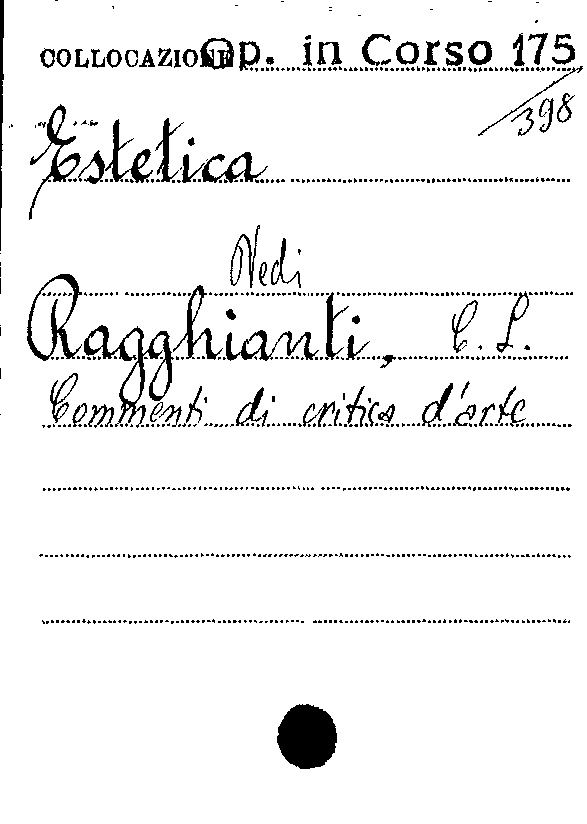 COLLOCAZIONE Op. in Corso 175
/398
Estetica
Vedi
Ragghianti, C. L.
Commenti di critica d'arte